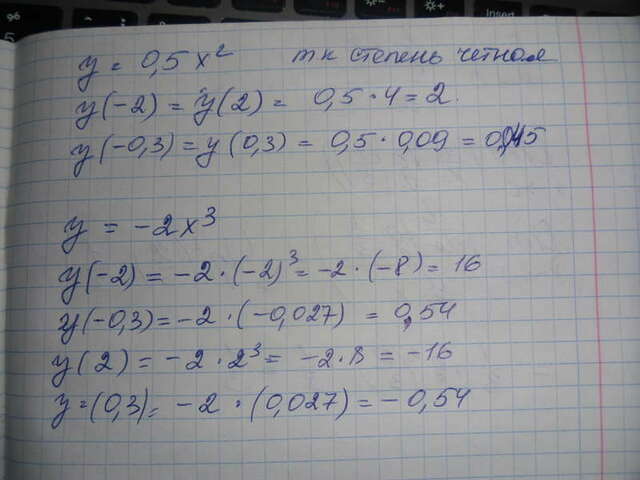 y = 0,5 x²   т к степень четная
y(-2) = y(2) = 0,5 · 4 = 2.
y(-0,3) = y(0,3) = 0,5 · 0,09 = 0,045
y = -2x³
y(-2) = -2 · (-2)³ = -2 · (-8) = 16
y(-0,3) = -2 · (-0,027) = 0,54
y(2) = -2 · 2³ = -2 · 8 = -16
y = (0,3) = -2 · (0,027) = -0,54
%
5
insert